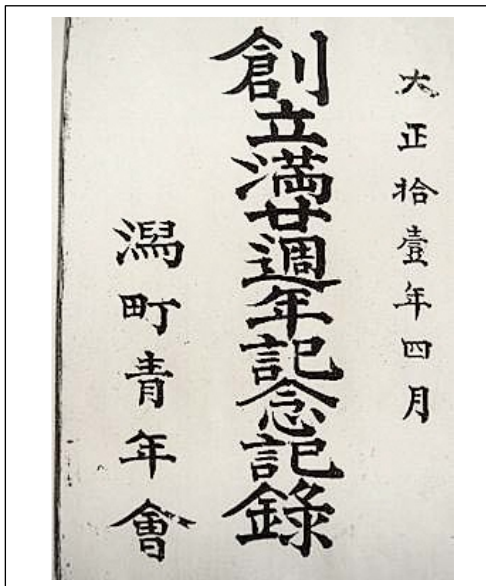 大正拾壹年四月
創立満廿週年記念記錄
潟町青年會